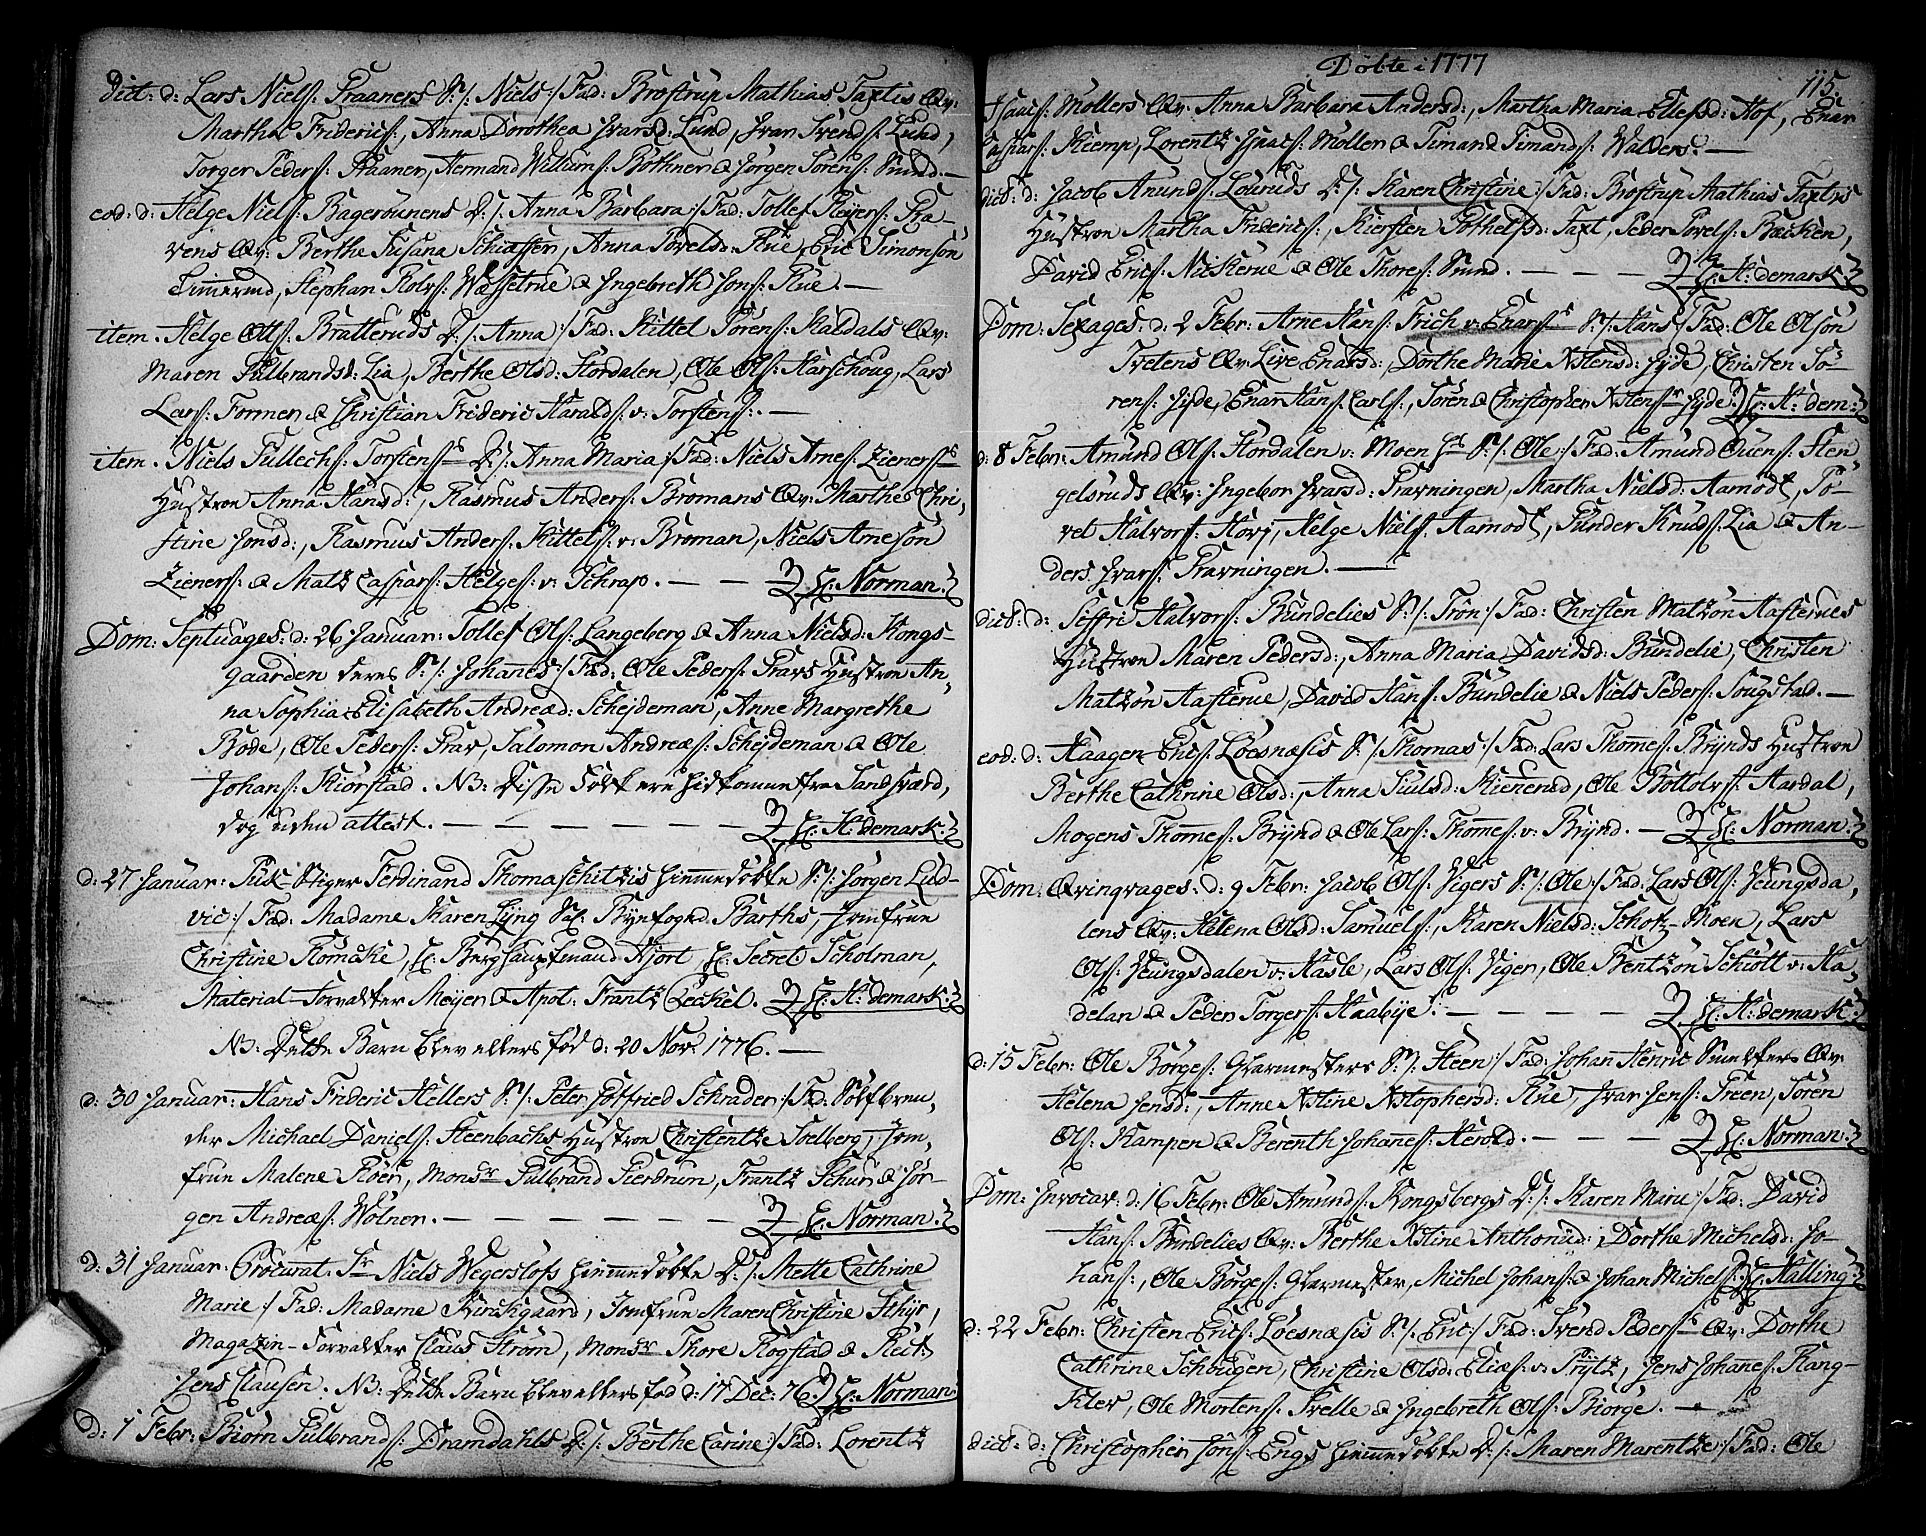 dict: d: Lars Niels: Praaners S:/: Niels :/ Fad: Brostrup Mathias Taxtis Qv:
Martha Frideric:, Anna Dorothea Ivarsd: Lund, Ivar Svends: Lund,
Torger Peders: Haaner, Hermand Willums: Bothner & Jørgen Sørens: Smed.—
eod: d: Helge Niels: Bagerounens D:/: Anna Barbara :/ Fad: Tollef Reyers: Gra-
vens Qv: Berthe Susana Schiøsser, Anna Povelsd: Rue, Eric Simonson
Timerud, Stephan Rolvs: Wæssetrue & Ingebreth Jons: Rue.—
item. Helge Ols: Bratteruds D:/: Anna :/ Fad: Kittel Sørens: Haldals Qv:
Maren Gulbrandsd: Lia, Berthe Olsd: Hordalen, Ole Ols: Karschoug, Lars
Lars: Formen & Christian Frideric Haralds: v: Torstens:.—
item. Niels Gullechs: Torstens: D:/: Anna Maria :/ Fad: Niels Arnes: Zieners:
Hustroe Anna Hansd:, Rasmus Anders: Bromans Qv: Marthe Chri-
stine Jonsd:, Rasmus Anders: Kittels: v: Broman, Niels Arneson
Zieners: & Matz Caspars: Helges: v: Schrap. — — H: Norman.
Dom: Septuages: d: 26 Januar: Tollef Ols: Langeberg & Anna Nielsd: Kongs-
gaarden deres S:/: Johanes :/ Fad: Ole Peders: Gravs Hustroe An-
na Sophia Elisabeth Andread: Schejdeman, Anne Margrethe
Bode, Ole Peders: Grav, Salomon Andreæs: Schejdeman & Ole
Johans: Kiørstad. NB: Disse Folk ere hidkomne fra Sandsværd,
dog uden attest. — — — — — — H: H: demark.
d: 27 Januar: Puk-Stiger Ferdinand Thomaschitzis hiemmedøbte S:/: Jørgen Lud-
vic :/ Fad: Madame Karen Lÿng Sal: Bÿefogd: Barths, Jomfrue
Christine Romcke, H: Berghauptmand Hjort, H: Secret: Scholman,
Material-Forvalter Meÿer & Apot: Frantz Leckel. H: H: demark.
NB: Dette Barn blev ellers fød d: 20 Nov: 1776.—
d: 30 Januar: Hans Frideric Hellers S:/: Peter Gotfried Schrader :/ Fad: Sølfbren-
der Michael Daniels: Steenbachs Hustroe Christentze Soelberg, Jom-
frue Malene Roen, Monsr Gulbrand Gierdrum, Frantz Schur & Jør-
gen Andreæs: Wolner. — — — — — — H: Norman.
d: 31 Januar: Procurat: Sr Niels Wegersløfs hiemmedøbte D:/: Mette Cathrine
Marie :/ Fad: Madame Kirchgaard, Jomfrue Maren Christine Sthÿr,
Magazin-Forvalter Claus Strøm, Monsr Thore Rogstad &
Jens Clausen. NB: Dette Barn blev ellers fød d: 17 Dec: 76. H: Norman.
d: 1 Febr: Biørn Gulbrands: Dramdahls D:/: Berthe Carine :/ Fad: Lorentz
Døbte i 1777
115.
Isaacs: Møllers Qv: Anna Barbara Andersd:, Martha Maria Ellefsd: Hof, Enar
Caspars: Kiemp, Lorentz Isaacs: Møller & Timand Timands: Walders.—
dict: d: Jacob Anunds: Louruds D:/: Karen Christine :/ Fad: Brostrup Mathias Taxtis
Hustroe Martha Frideric:, Kiersten Gothelfsd: Taxt, Peder Povels: Bæcken,
David Erics: Nickerue & Ole Thores: Sund. — — — H: H: demark.
Dom: Sexages: d: 2 Febr: Arne Hans: Frich v: Enars: S:/: Hans :/ Fad: Ole Olson
Tvetens Qv: Live Enarsd:, Dorthe Marie Xstensd: Hyde, Christen Sø-
rens: Hyde, Enar Hans: Carls:, Søren & Christopher Xstens: Hyde. H: H: dem:
d: 8 Febr: Amund Ols: Hordalen v: Moen S:/: Ole :/ Fad: Amund Ouens: Sten
gelsruds Qv: Ingebor Ivarsd: Gravningen, Martha Nielsd: Aamodt, To-
vel Halvors: Hovj, Helge Niels: Aamodt, Gunder Knuds: Lia & An-
ders Ivars: Gravningen.—
dict: d: Siffri Halvors: Bundelies S:/: Tron :/ Fad: Christen Matzon Aasterues
Hustroe Maren Pedersd:, Anna Maria Davidsd: Bundelie, Christen
Matzon Aasterue, David Hans: Bundelie & Niels Peders: Sougstad.—
eod: d: Haagen Erics: Løesnæsis S:/: Thomas :/ Fad: Lars Thomes: Brÿnds Hustroe
Berthe Cathrine Olsd:, Anna Juulsd: Kienerud, Ole Bottolvs: Aardal,
Mogens Thomes: Brÿnd & Ole Lars: Thomes: v: Brÿnd. — H: Norman.
Dom: Qvinqvages: d: 9 Febr: Jacob Ols: Vigers S:/: Ole :/ Fad: Lars Ols: Veungsda-
lens Qv: Helena Olsd: Samuels:, Karen Nielsd: Schotz-Moen, Lars
Ols: Veungsdalen v: Hasle, Lars Ols: Viger, Ole Bentzon Schiøtt v: Ha-
delan & Peder Torgers: Haabÿe. — — — — H: H: demark.
d: 15 Febr: Ole Børges: Glarmesters S:/: Steen :/ Fad: Johan Henric Smelters Qv:
Helena Jensd:, Anne Xstine Xstophersd: Rue, Ivar Jens: Green, Søren
Ols: Kampen & Berenth Johanes: Herold. — — — H: Norman.
Dom: Invocav: d: 16 Febr: Ole Amunds: Kongsbergs D:/: Karen Marie :/ Fad: David
Hans: Bundelies Qv: Berthe Xstine Anthonud:, Dorthe Michelsd: Jo-
hans:, Ole Børges: Glarmester, Michel Johans: & Johan Michels: H: Halling.
d: 22 Febr: Christen Erics: Løesnæsis S:/: Eric :/ Fad: Svend Peders: Qv: Dorthe
Cathrine Schougen, Christine Olsd: Eliæs: v: Prÿtz, Jens Johanes: Rang-
Kler, Ole Mortens: Trelle & Ingebreth Ols: Biorge. —
dict: d: Christopher Jons: Engs hiemmedøbte D:/: Maren Marentze :/ Fad: Ole